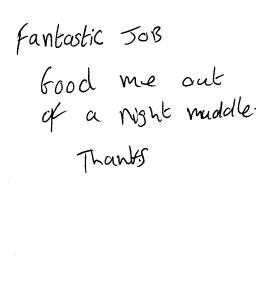 Fantastic JOB
Good me out
of a night muddle.
Thanks